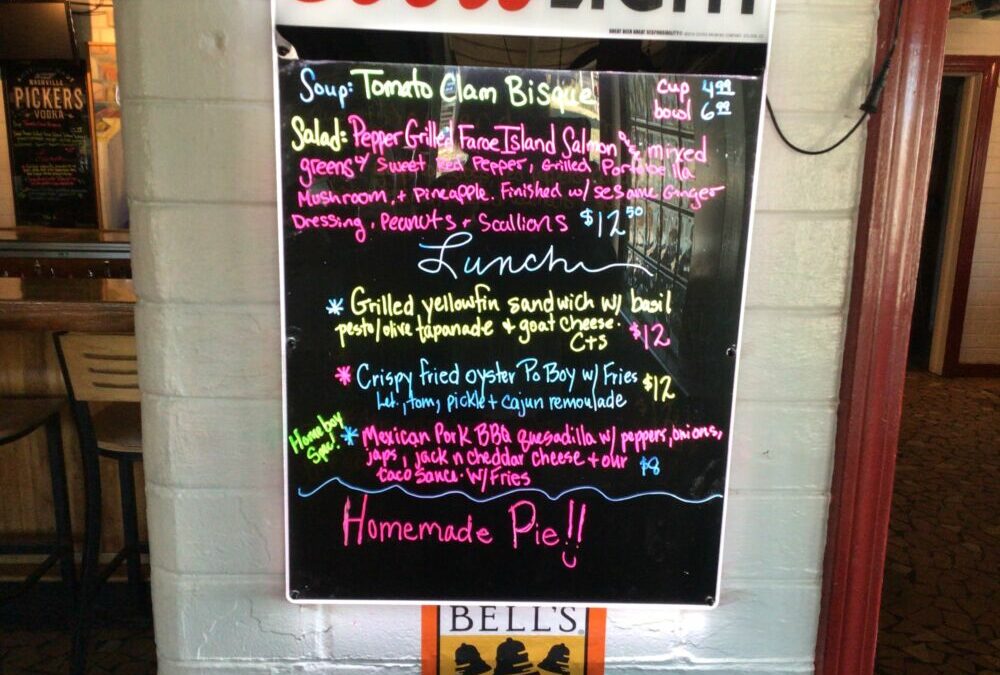 Coors LIGHT
GREAT BEER GREAT RESPONSIBILITY®
NASHVILLE
PICKERS
VODKA
Soup: Tomato Clam Bisque cup 4.99
bowl 6.99
Salad: Pepper Grilled Faroe Island Salmon mixed
greens w/ Sweet Red Pepper, Grilled Portabella
Mushroom, + Pineapple. Finished w/ sesame Ginger
Dressing, Peanuts + Scallions $12.50
Lunch
* Grilled yellowfin sandwich w/ basil
pesto/olive tapanade + goat cheese. $12
C+S
* Crispy fried oyster Po Boy w/ Fries $12
Let., tom, pickle + cajun remoulade
Homeboy
Spec!
* Mexican Pork BBQ quesadilla w/ peppers, onions,
japs, jack n cheddar cheese + our $8
taco sauce. w/ Fries
Homemade Pie!!
BELL'S